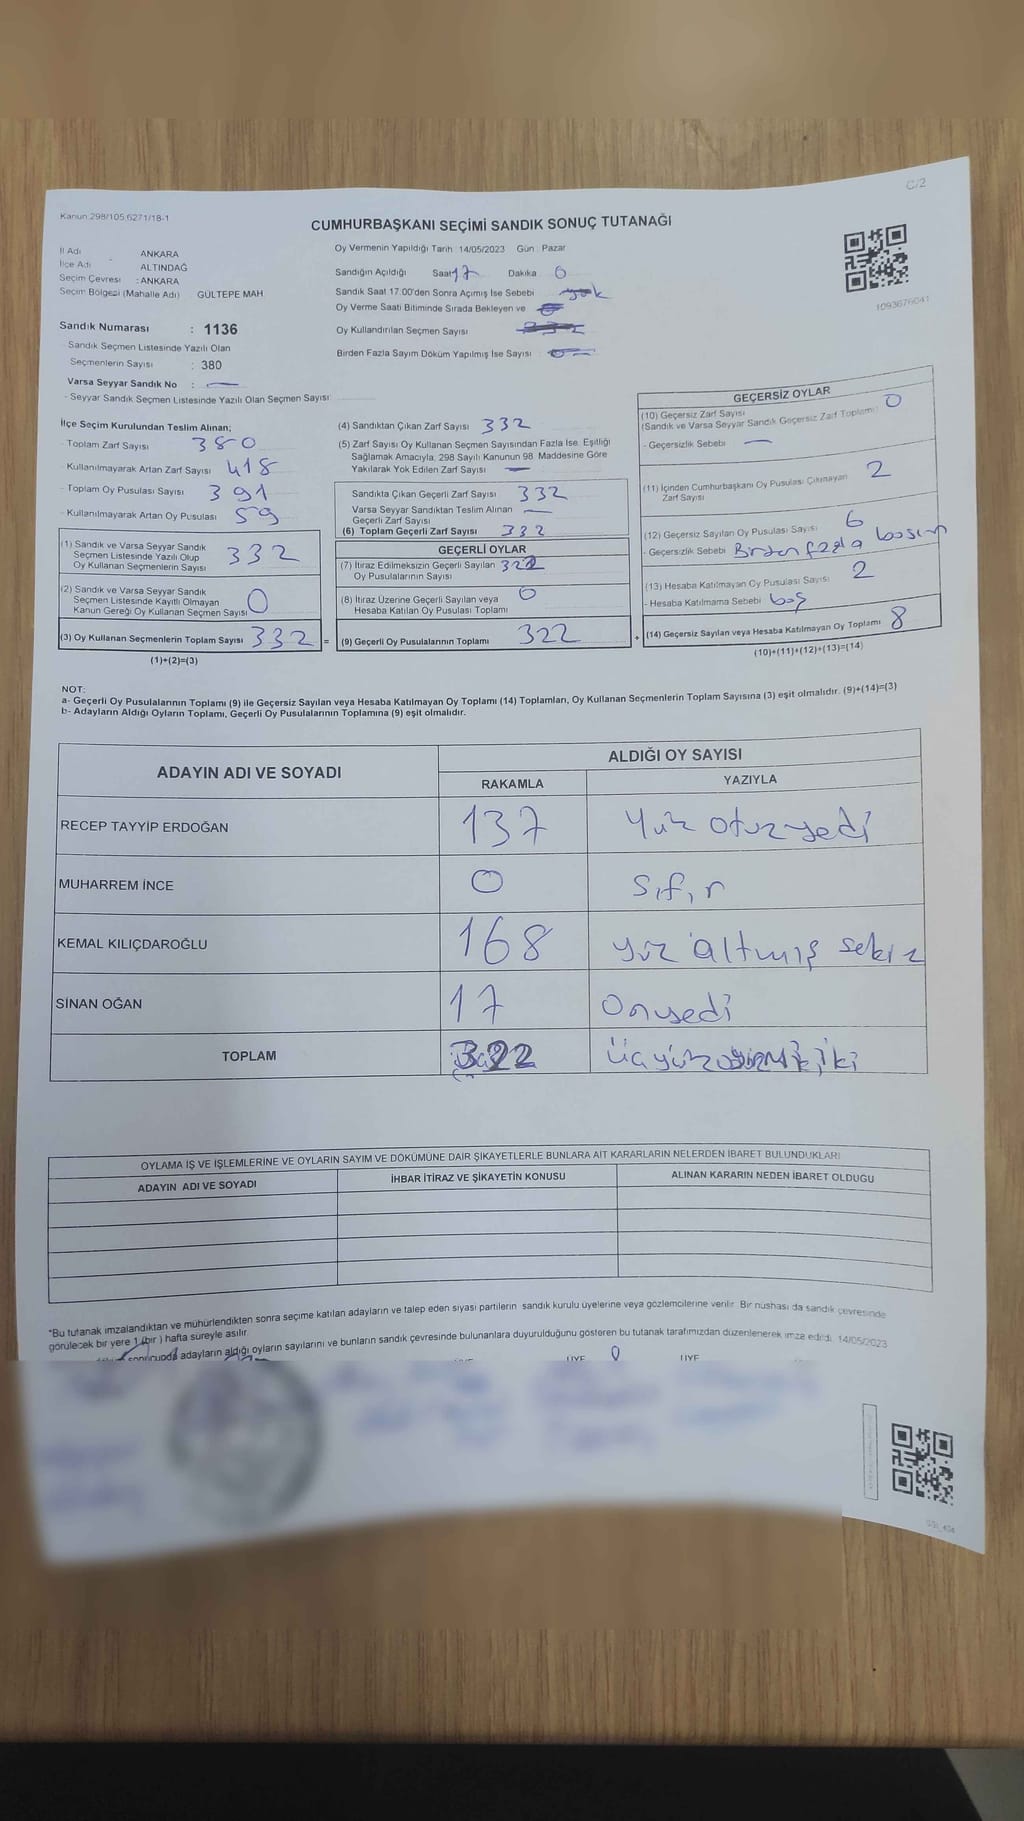 C/2
Kanun 298/105 6271/18-1
CUMHURBAŞKANI SEÇİMİ SANDIK SONUÇ TUTANAĞI
İl Adı ANKARA
İlçe Adı ALTINDAĞ
Seçim Çevresi : ANKARA
Seçim Bölgesi (Mahalle Adı) GÜLTEPE MAH
Oy Vermenin Yapıldığı Tarih 14/05/2023 Gün Pazar
Sandığın Açıldığı Saat 17 Dakika 6
Sandık Saat 17:00'den Sonra Açımış İse Sebebi yok
Oy Verme Saati Bitiminde Sırada Bekleyen ve
Oy Kullandırılan Seçmen Sayısı
Birden Fazla Sayım Döküm Yapılmış İse Sayısı
1093676041
Sandık Numarası : 1136
- Sandık Seçmen Listesinde Yazılı Olan
Seçmenlerin Sayısı : 380
Varsa Seyyar Sandık No : —
- Seyyar Sandık Seçmen Listesinde Yazılı Olan Seçmen Sayısı:
İlçe Seçim Kurulundan Teslim Alınan;
- Toplam Zarf Sayısı 380
- Kullanılmayarak Artan Zarf Sayısı 418
- Toplam Oy Pusulası Sayısı 391
- Kullanılmayarak Artan Oy Pusulası 59
(1) Sandık ve Varsa Seyyar Sandık
Seçmen Listesinde Yazılı Olup
Oy Kullanan Seçmenlerin Sayısı 332
(2) Sandık ve Varsa Seyyar Sandık
Seçmen Listesinde Kayıtlı Olmayan
Kanun Gereği Oy Kullanan Seçmen Sayısı 0
(3) Oy Kullanan Seçmenlerin Toplam Sayısı 332 =
(1)+(2)=(3)
(4) Sandıktan Çıkan Zarf Sayısı 332
(5) Zarf Sayısı Oy Kullanan Seçmen Sayısından Fazla İse, Eşitliği
Sağlamak Amacıyla, 298 Sayılı Kanunun 98. Maddesine Göre
Yakılarak Yok Edilen Zarf Sayısı —
Sandıkta Çıkan Geçerli Zarf Sayısı 332
Varsa Seyyar Sandıktan Teslim Alınan
Geçerli Zarf Sayısı —
(6) Toplam Geçerli Zarf Sayısı 332
GEÇERLİ OYLAR
(7) İtiraz Edilmeksizin Geçerli Sayılan
Oy Pusulalarının Sayısı 322
(8) İtiraz Üzerine Geçerli Sayılan veya
Hesaba Katılan Oy Pusulası Toplamı 0
(9) Geçerli Oy Pusulalarının Toplamı 322 +
GEÇERSİZ OYLAR
(10) Geçersiz Zarf Sayısı
(Sandık ve Varsa Seyyar Sandık Geçersiz Zarf Toplamı) 0
- Geçersizlik Sebebi —
(11) İçinden Cumhurbaşkanı Oy Pusulası Çıkmayan
Zarf Sayısı 2
(12) Geçersiz Sayılan Oy Pusulası Sayısı 6
- Geçersizlik Sebebi Birden fazla basım
(13) Hesaba Katılmayan Oy Pusulası Sayısı 2
- Hesaba Katılmama Sebebi boş
(14) Geçersiz Sayılan veya Hesaba Katılmayan Oy Toplamı 8
(10)+(11)+(12)+(13)=(14)
NOT:
a- Geçerli Oy Pusulalarının Toplamı (9) ile Geçersiz Sayılan veya Hesaba Katılmayan Oy Toplamı (14) Toplamları, Oy Kullanan Seçmenlerin Toplam Sayısına (3) eşit olmalıdır. (9)+(14)=(3)
b- Adayların Aldığı Oyların Toplamı, Geçerli Oy Pusulalarının Toplamına (9) eşit olmalıdır.
ADAYIN ADI VE SOYADI
ALDIĞI OY SAYISI
RAKAMLA YAZIYLA
RECEP TAYYİP ERDOĞAN 137 Yüz otuzyedi
MUHARREM İNCE 0 Sıfır
KEMAL KILIÇDAROĞLU 168 yüz altmış sekiz
SİNAN OĞAN 17 Onyedi
TOPLAM 322 Üçyüz iki
OYLAMA İŞ VE İŞLEMLERİNE VE OYLARIN SAYIM VE DÖKÜMÜNE DAİR ŞİKAYETLERLE BUNLARA AİT KARARLARIN NELERDEN İBARET BULUNDUKLARI
ADAYIN ADI VE SOYADI İHBAR İTİRAZ VE ŞİKAYETİN KONUSU ALINAN KARARIN NEDEN İBARET OLDUĞU
*Bu tutanak imzalandıktan ve mühürlendikten sonra seçime katılan adayların ve talep eden siyasi partilerin sandık kurulu üyelerine veya gözlemcilerine verilir. Bir nüshası da sandık çevresinde
görülecek bir yere 1 (bir) hafta süreyle asılır.
sonucunda adayların aldığı oyların sayılarını ve bunların sandık çevresinde bulunanlara duyurulduğunu gösteren bu tutanak tarafımızdan düzenlenerek imza edildi. 14/05/2023
ÜYE ÜYE